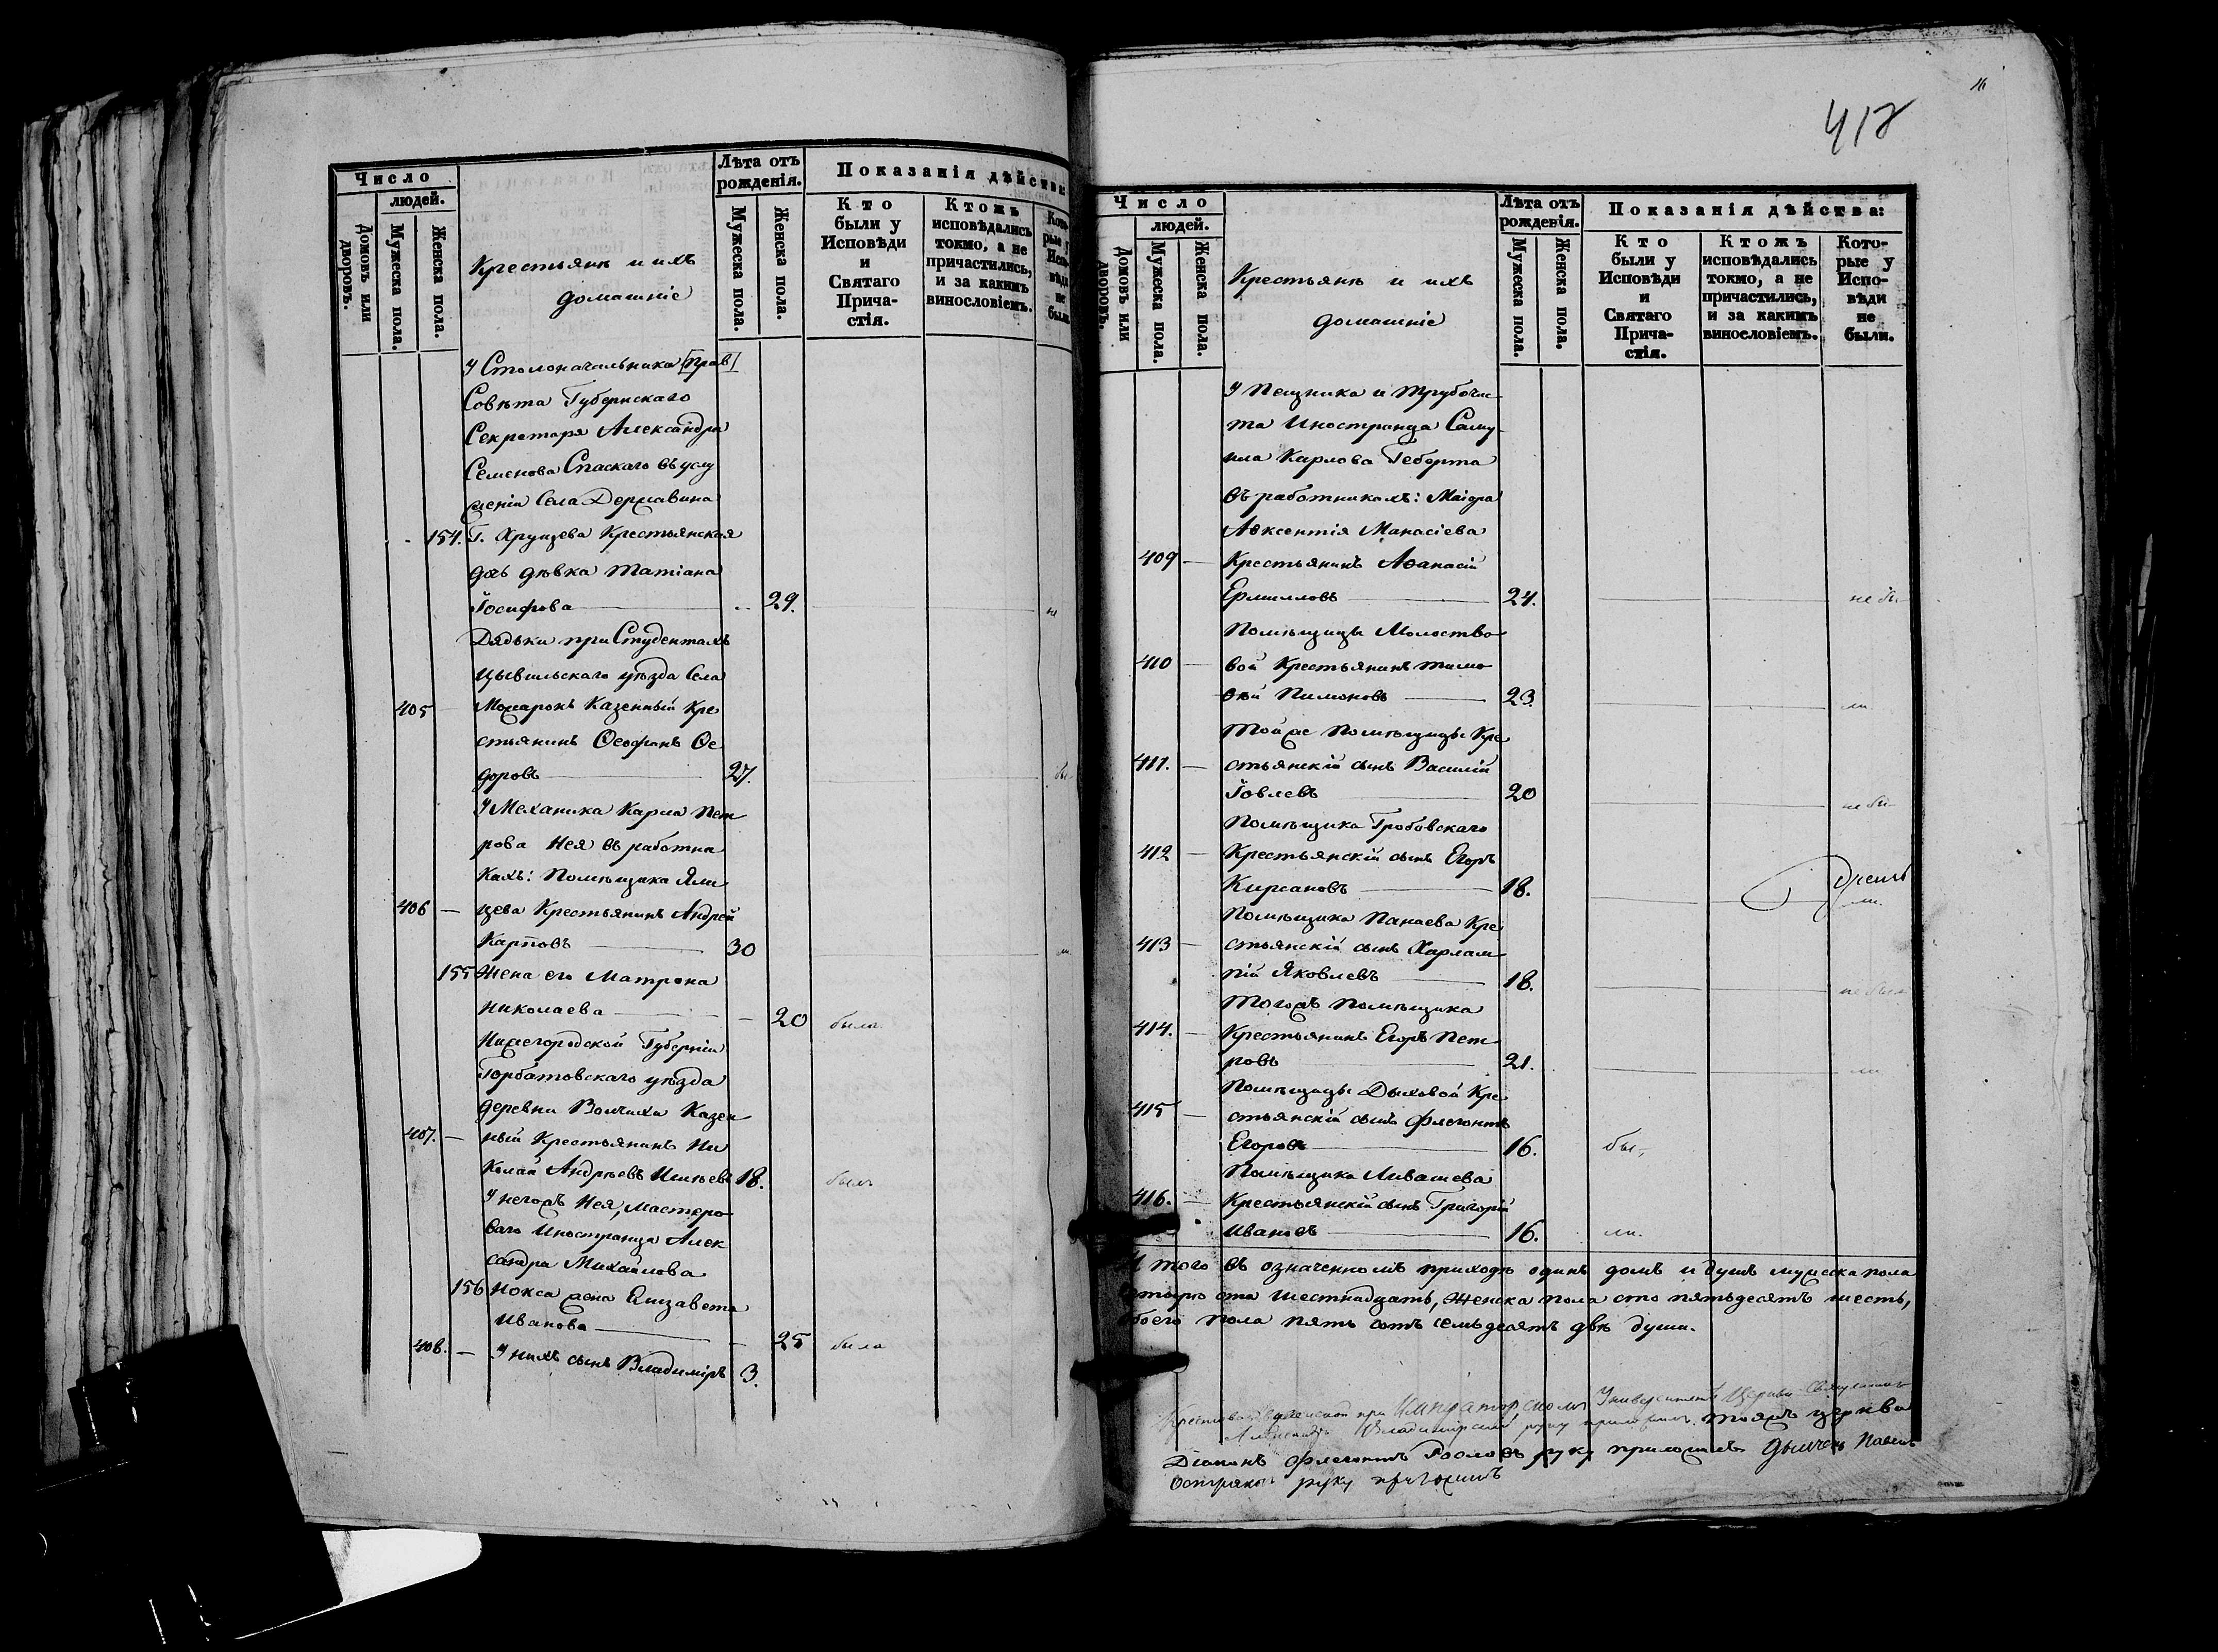 Число
людей.
Домовъ или дворовъ.
Мужеска пола.
Женска пола.
Крестьянъ и ихъ
домашніе
Лѣта отъ
рожденія.
Мужеска пола.
Женска пола.
Показанія дѣйства:
Кто
были у
Исповѣди
и
Святаго
Прича-
стія.
Ктожъ
исповѣдались
токмо, а не
причастились,
и за какимъ
винословіемъ.
Кото-
рые у
Испо-
вѣди
не
были.
У Столоначальника [Прав]
Совѣта Губернскаго
Секретаря Александра
Семенова Спаскаго въ услу
женіи Села Державина
154. Г. Хрущева Крестьянская
дѣвка Татіана
Іосифова 29. не
Дядька при Студентахъ
Цывильскаго уѣзда Села
405 Можарокъ Казенный Кре
стьянинъ Ѳеофанъ Ѳе
доровъ 27. бы
У Механика Карла Пет
рова Нея въ работни
кахъ: Помѣщика Яли
406 — цева Крестьянинъ Андрей
Карповъ 30
155 Жена его Матрона
Николаева — 20 была
Нижегородской Губерніи
Горбатовскаго уѣзда
деревни Волчихи Казен
407. — ный Крестьянинъ Ни
колай Андреевъ 18. былъ
У негожъ Нея, мастеро
ваго Иностранца Алек
сандра Михайлова
156 Нокса жена Елизавета
Иванова — 25 была
408. — У нихъ сынъ Владиміръ 3.
412
Число
людей.
Домовъ или дворовъ.
Мужеска пола.
Женска пола.
Крестьянъ и ихъ
домашніе
Лѣта отъ
рожденія.
Мужеска пола.
Женска пола.
Показанія дѣйства:
Кто
были у
Исповѣди
и
Святаго
Прича-
стія.
Ктожъ
исповѣдались
токмо, а не
причастились,
и за какимъ
винословіемъ.
Кото-
рые у
Испо-
вѣди
не
были.
У Пещника и трубочи
та Иностранца Саму
ила Карлова Геберта
въ работникахъ: Маіора
Авксентія Манасіева
409 — Крестьянинъ Аѳанасій
Ермиловъ 24. не бы
Помѣщицы Молоство
410 — вой Крестьянинъ Тимо
ѳей Пимоновъ 23.
Тойже Помѣщицы Кре
411. — стьянскій сынъ Василій
Іовлевъ 20 не бы
Помѣщика Гробовскаго
412 — Крестьянскій сынъ Егоръ
Кирсановъ 18.
Помѣщика Панаева Кре
413 — стьянскій сынъ Харлам
пій Яковлевъ 18. не былъ
Тогожъ Помѣщика
414. — Крестьянинъ Егоръ Пет
ровъ 21.
Помѣщицы Дыховой Кре
415 — стьянскій сынъ Флегонтъ
Егоровъ 16. бы
Помѣщика Ливашева
416. — Крестьянскій сынъ Григорій
Ивановъ 16.
Итого въ означенномъ приходѣ одинъ домъ и душъ мужеска пола
четыре ста шестнадцать, женска пола сто пятьдесятъ шесть,
обоего пола пять сотъ семьдесятъ двѣ души.
Крестовоздвиженской при Императорскомъ Университетѣ Церкви Священникъ
Александръ Владимірскій руку приложилъ. Тояжъ церкви
Діаконъ Флегонтъ руку приложилъ Дьячекъ Павелъ
руку приложилъ